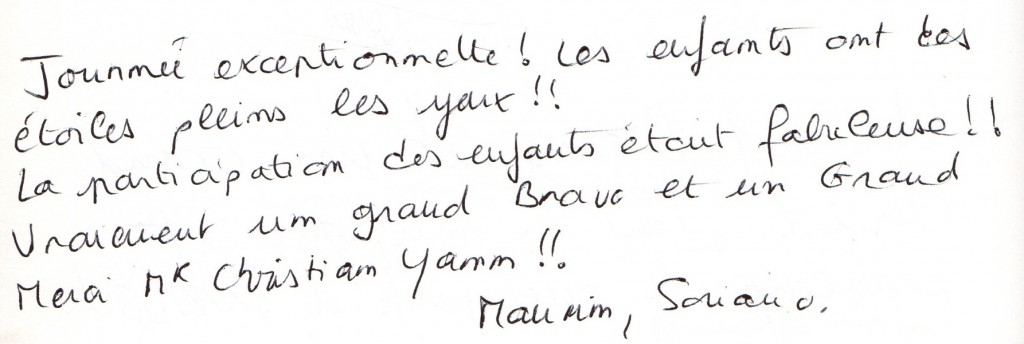 Journée exceptionnelle ! Les enfants ont les
étoiles pleins les yeux !!
La participation des enfants était fabuleuse !!
Vraiment un grand Bravo et un Grand
Merci Mr Christian Yann !!
Maurin, Soriano.